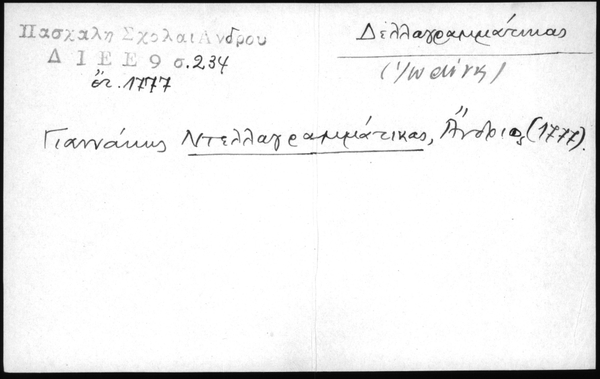 Πασχαλη Σχολαι Ανδρου
Δ Ι Ε Ε 9 σ. 234
ἔτ. 1777
Δελλαγραμμάτικας
Γιαννάκης Ντελλαγραμμάτικας, Ἄνδριος (1777).